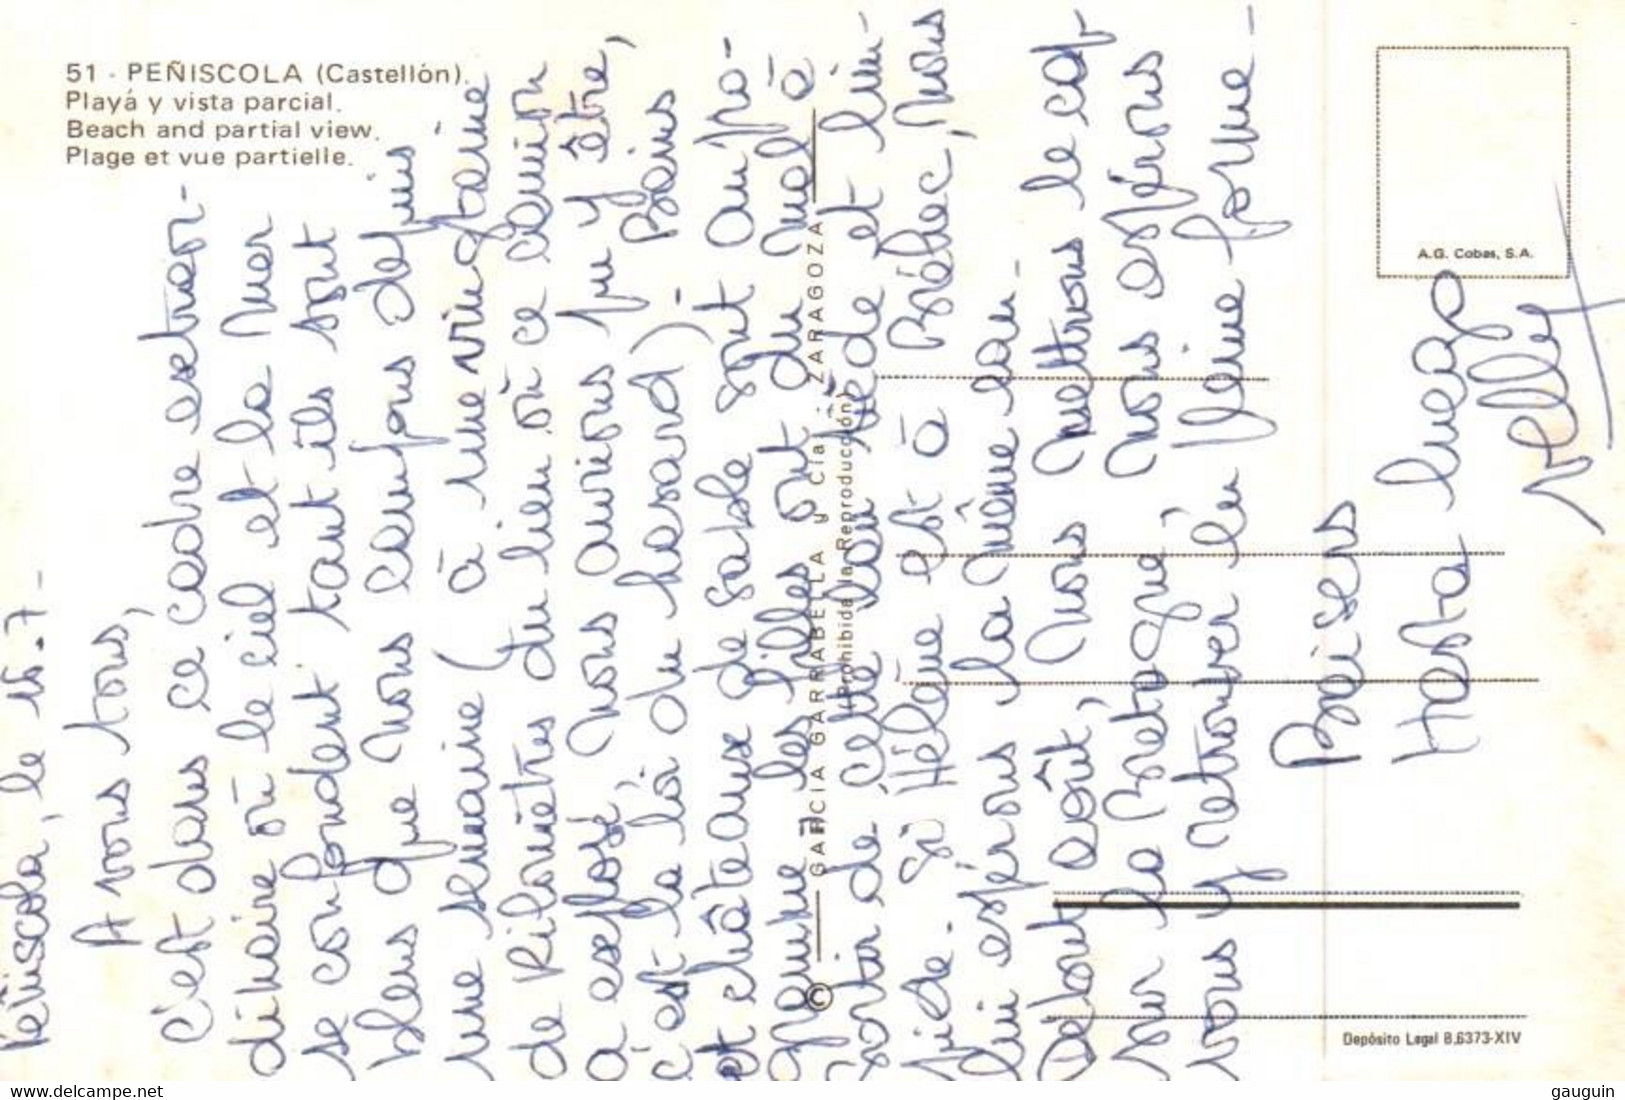 51 - PEÑISCOLA (Castellón).
Playá y vista parcial.
Beach and partial view.
Plage et vue partielle.
A.G. Cobas, S.A.
© GARCIA GARRABELLA y Cía. - ZARAGOZA
(Prohibida la Reproducción)
Depósito Legal B.6373-XIV
Peñiscola, le 15.7-
A vous tous,
C'est dans ce cadre extraor-
dinaire où le ciel et la mer
se confondent tant ils sont
bleus que nous campons depuis
une semaine (à une vingtaine
de kilomètres du lieu où ce camion
a explosé, nous aurions pu y être,
c'est là là du hasard) - Bains
et châteaux de sable sont au pro-
gramme, les filles ont du mal à
sortir de cette eau tiède et lim-
pide. Si Hélène est à Bréhec, nous
lui espérons la même eau -
Début août, nous mettrons le cap
sur la Bretagne, nous espérons
vous y retrouver en pleine forme -
Baisers
Hasta luego
Nelly
delcampe.net
gauguin